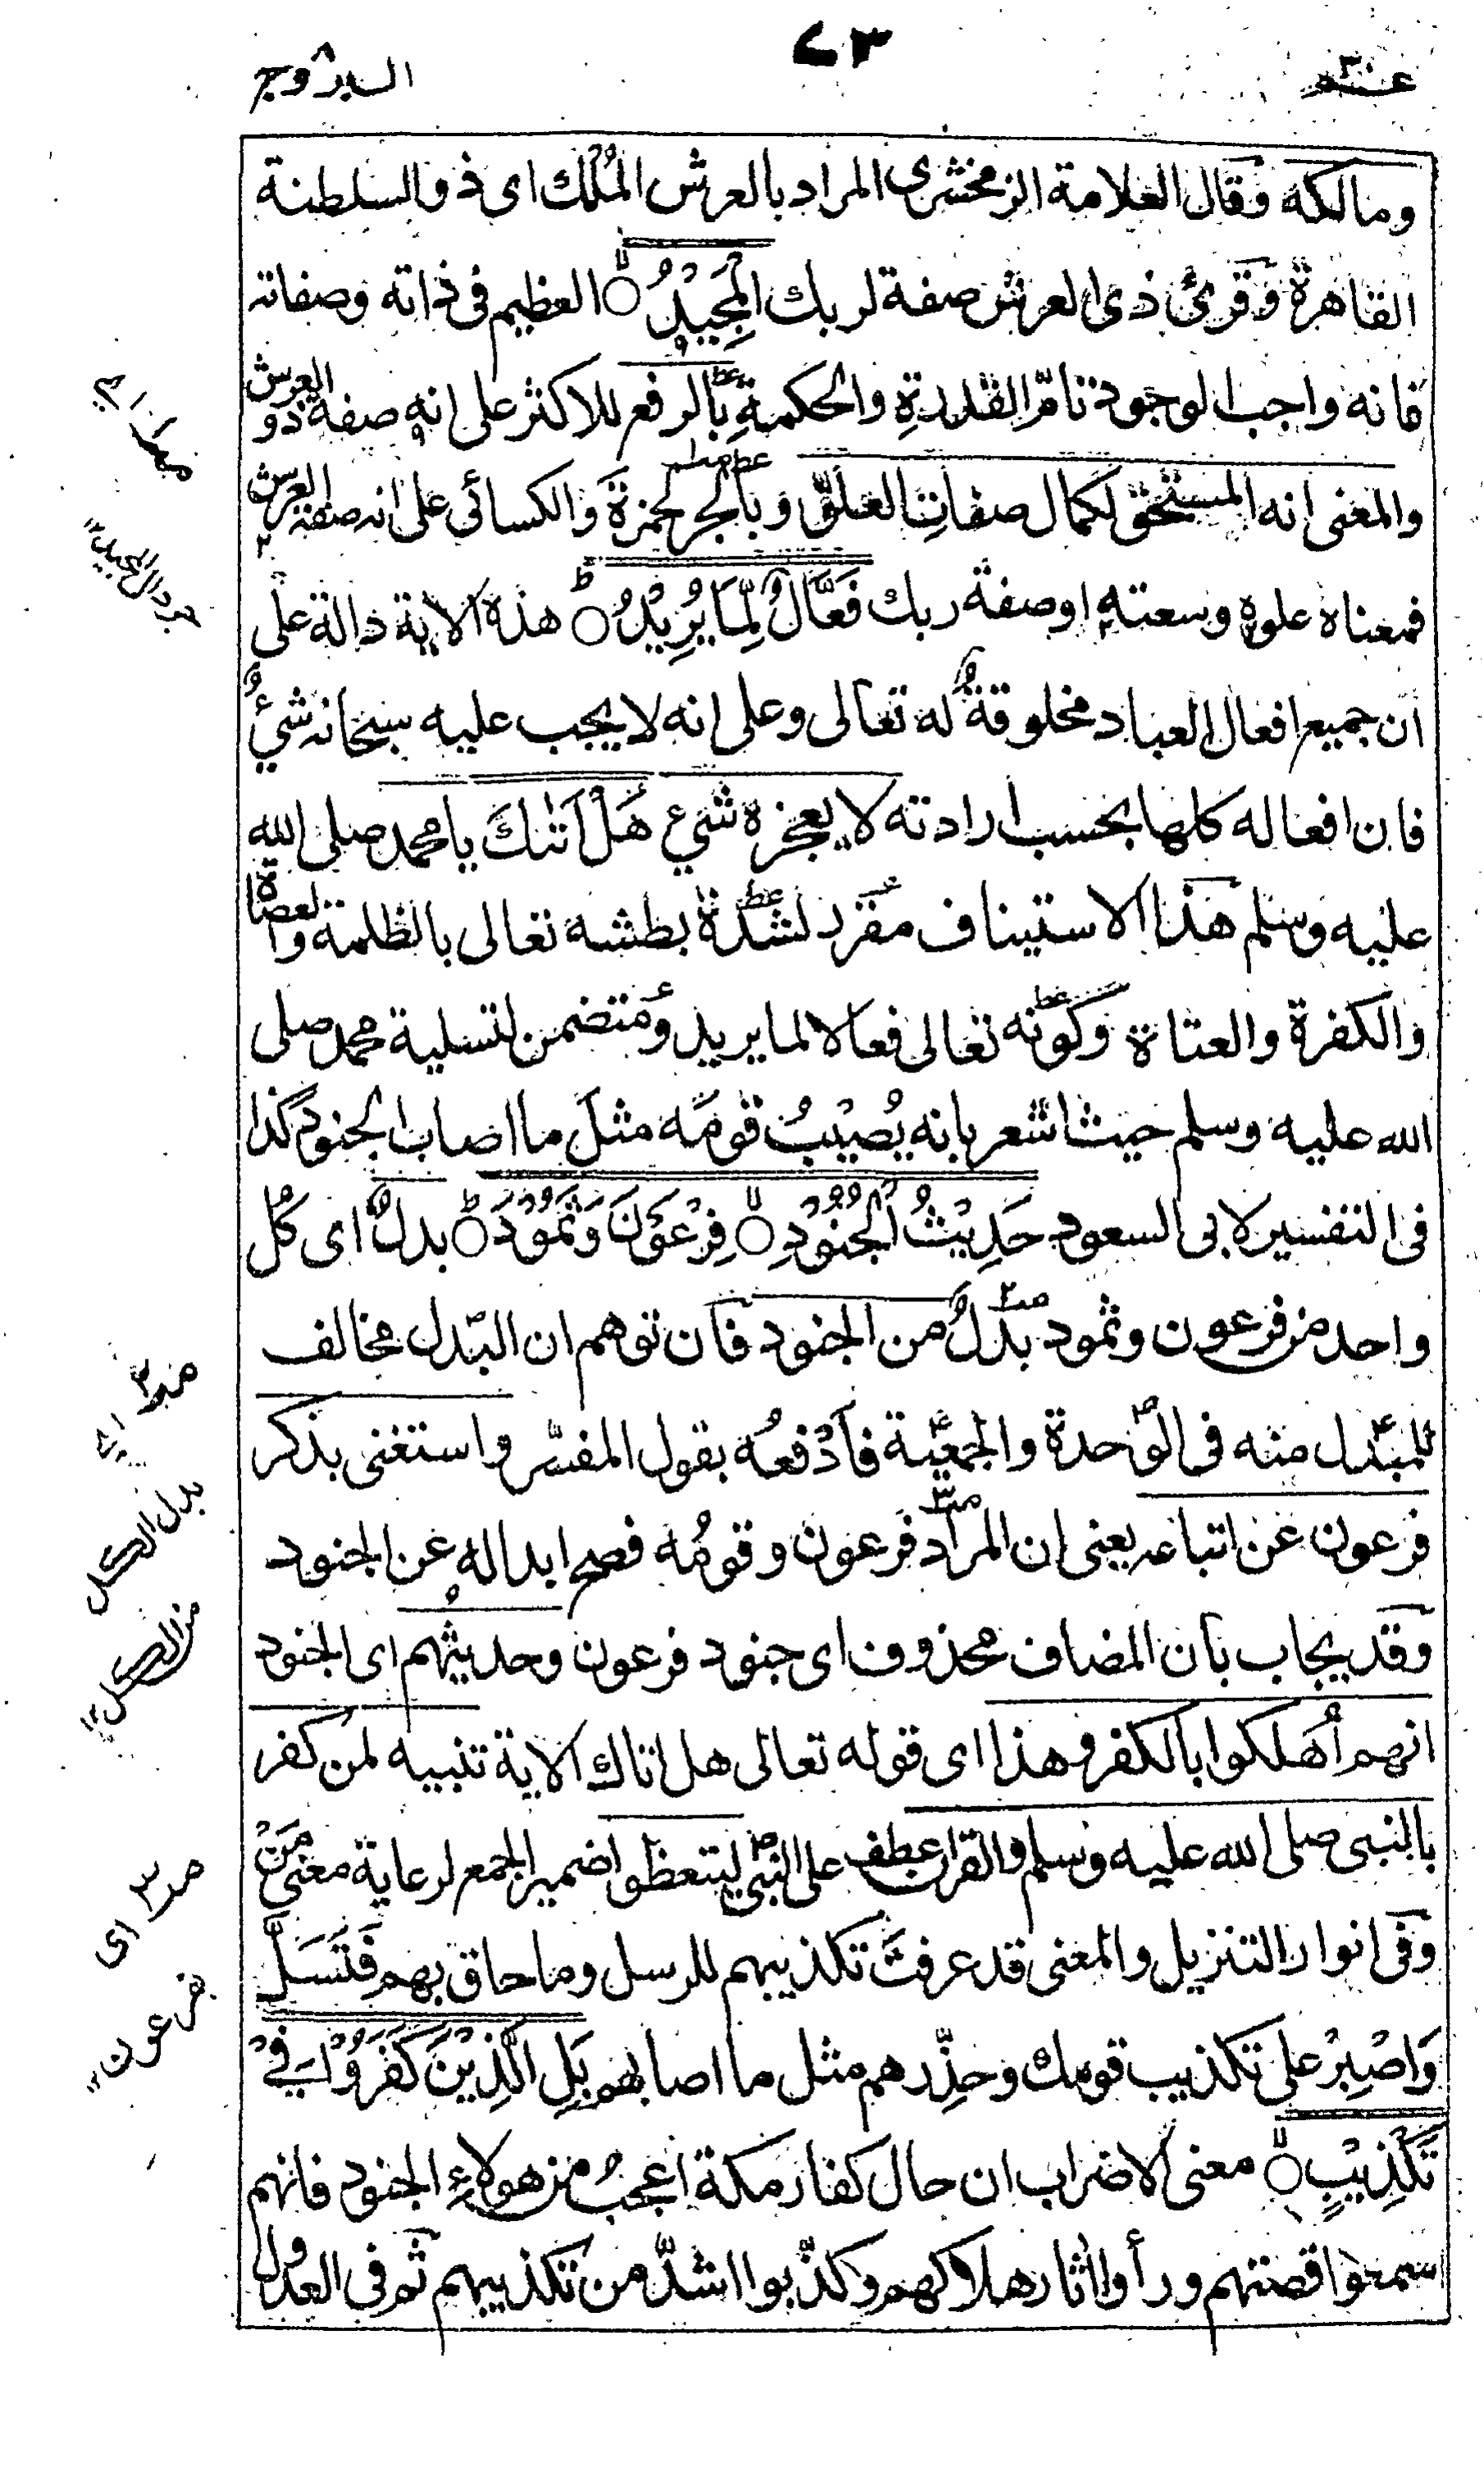 عـــم ٣٠
٧٣
البروج
ومالكه وقال العلامة الزمخشرى المراد بالعرش المُلك اى ذو السلطنة
القاهرة وقرئ ذى العرش صفة لربك الْمَجِيْدُ ۙ العظيم فى ذاته وصفاته
فانه واجب الوجود تامّ القدرةِ والحكمةِ بالرفع للاكثر على انه صفة ذو العرش
والمعنى انه المستحق لكمال صفاتِ العلوّ وبالجر لحمزةَ والكسائى على انه صفة العرش
فمعناه علوه وسعته اوصفة ربك فَعَّالٌ لِّمَا يُرِيْدُ ؕ هذه الاية دالة على
ان جميع افعال العباد مخلوقةٌ له تعالى وعلى انه لا يجب عليه سبحانه شيءٌ
فان افعاله كلها بحسب ارادته لا يعجزه شيء هَلْ اَتٰىكَ يا محمد صلى الله
عليه وسلم هذا الاستيناف مقرر لشدة بطشه تعالى بالظلمة والعصاة
والكفرة والعتاة وكونه تعالى فعالا لما يريد ومتضمن لتسلية محمد صلى
الله عليه وسلم حيث اشعر بانه يُصِيْبُ قومَه مثلَ ما اصاب الجنود كذا
فى التفسير لابى السعود حَدِيْثُ الْجُنُوْدِ ۙ فِرْعَوْنَ وَثَمُوْدَ ؕ بدلٌ اى كلُ
واحد من فرعون وثمود بدلٌ من الجنود فان توهم ان البدل مخالف
للمبدل منه فى الوحدة والجمعية فادفعه بقول المفسّر واستغنى بذكر
فرعون عن اتباعه يعنى ان المراد فرعون وقومُه فصح ابداله عن الجنود
وقد يجاب بان المضاف محذوف اى جنود فرعون وحديثُهم اى الجنود
انهم اُهلكوا بالكفر وهذا اى قوله تعالى هل اتاك الاية تنبيه لمن كفر
بالنبى صلى الله عليه وسلم والقران عطف على النبى ليتعظوا ضمير الجمع لرعاية معنى مَنْ
وفى انوار التنزيل والمعنى قد عرفتَ تكذيبهم للرسل وما حاق بهم فَتَسَلَّ
وَاصْبِرْ على تكذيب قومك وحذّرهم مثل ما اصابهم بَلِ الَّذِيْنَ كَفَرُوْا فِيْ
تَكْذِيْبٍ ۙ معنى الاضراب ان حال كفار مكة اعجبُ من هولاء الجنود فانهم
سمعوا قصتهم ورأوا اثار هلاكهم وكذّبوا اشدّ من تكذيبهم ثم فى العدول
اى
بدل الكل
من الكل
اى
بفرعون